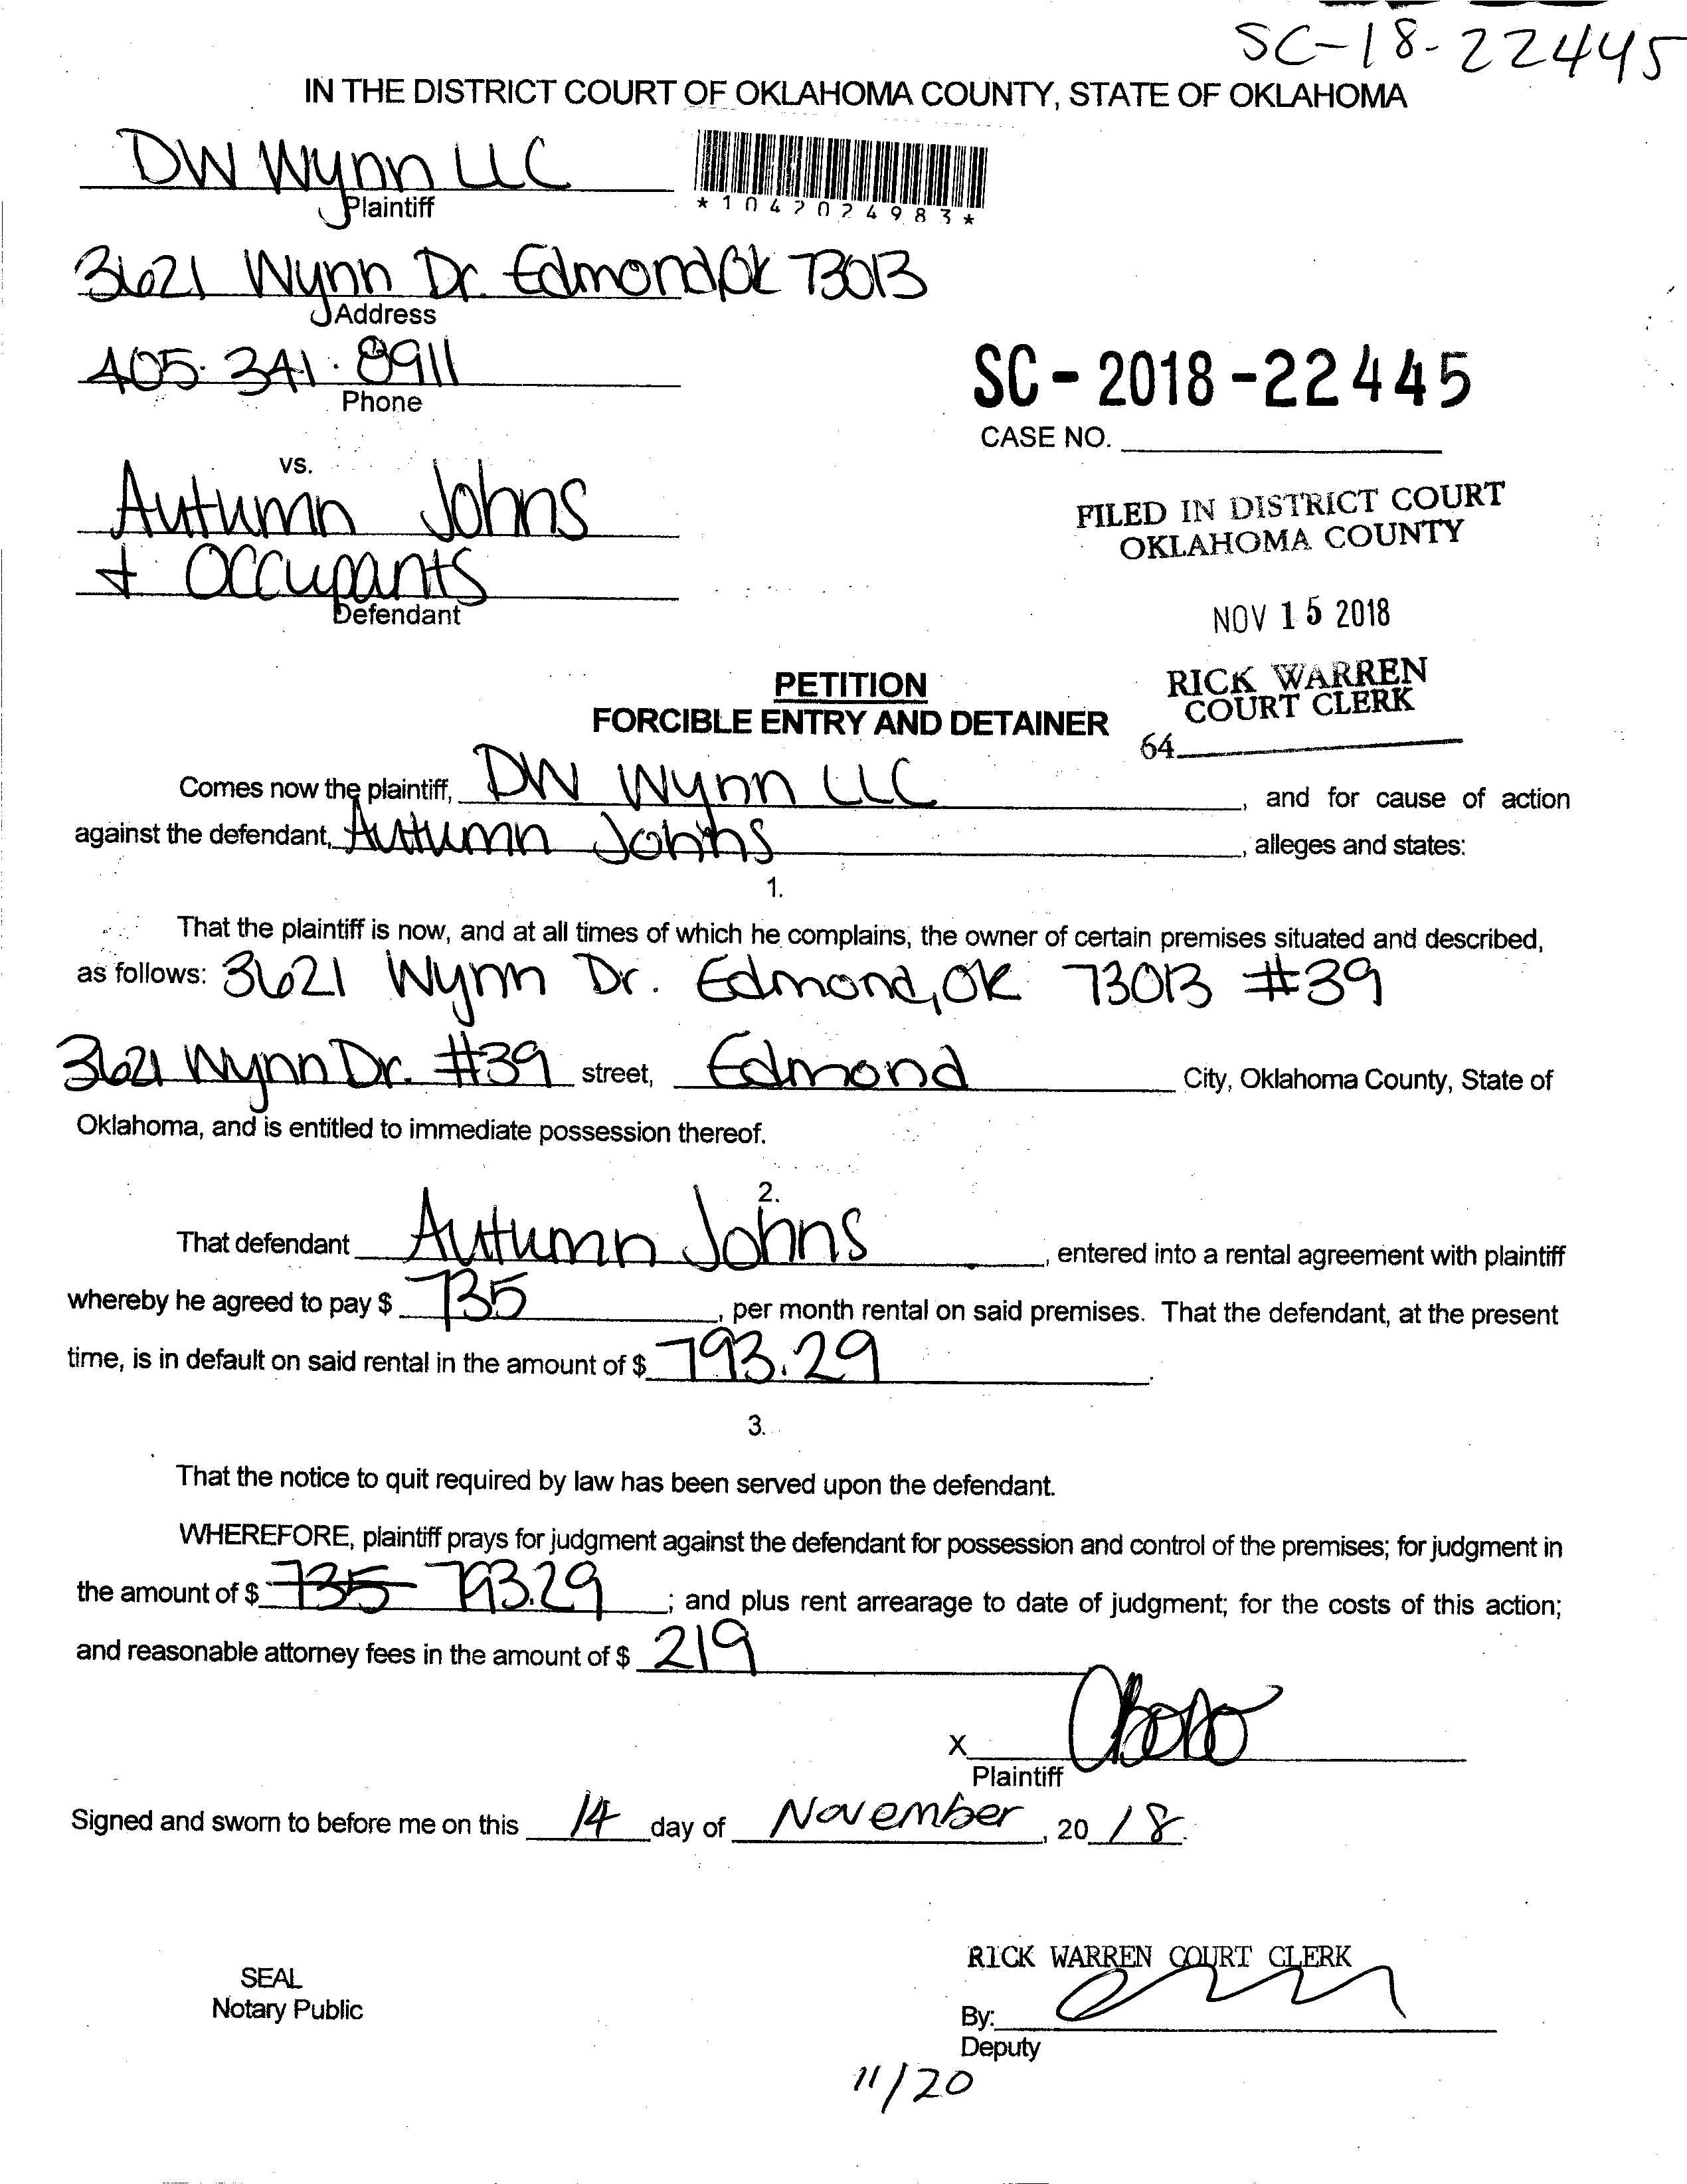 SC-18-22445
IN THE DISTRICT COURT OF OKLAHOMA COUNTY, STATE OF OKLAHOMA
DW Wynn LLC
Plaintiff
*1042024983*
3621 Wynn Dr. Edmond, OK 73013
Address
405.341.8911
Phone
SC-2018-22445
CASE NO.
vs.
Autumn Johns
+ Occupants
Defendant
FILED IN DISTRICT COURT
OKLAHOMA COUNTY
NOV 15 2018
RICK WARREN
COURT CLERK
64
PETITION
FORCIBLE ENTRY AND DETAINER
Comes now the plaintiff, DW Wynn LLC, and for cause of action
against the defendant, Autumn Johns, alleges and states:
1.
That the plaintiff is now, and at all times of which he complains, the owner of certain premises situated and described,
as follows: 3621 Wynn Dr. Edmond, OK 73013 #39
3621 Wynn Dr. #39 street, Edmond City, Oklahoma County, State of
Oklahoma, and is entitled to immediate possession thereof.
2.
That defendant Autumn Johns, entered into a rental agreement with plaintiff
whereby he agreed to pay $ 735, per month rental on said premises. That the defendant, at the present
time, is in default on said rental in the amount of $ 793.29.
3.
That the notice to quit required by law has been served upon the defendant.
WHEREFORE, plaintiff prays for judgment against the defendant for possession and control of the premises; for judgment in
the amount of $ 735 793.29; and plus rent arrearage to date of judgment; for the costs of this action;
and reasonable attorney fees in the amount of $ 219
X
Plaintiff
Signed and sworn to before me on this 14 day of November, 20 18.
SEAL
Notary Public
RICK WARREN COURT CLERK
By:
Deputy
11/20